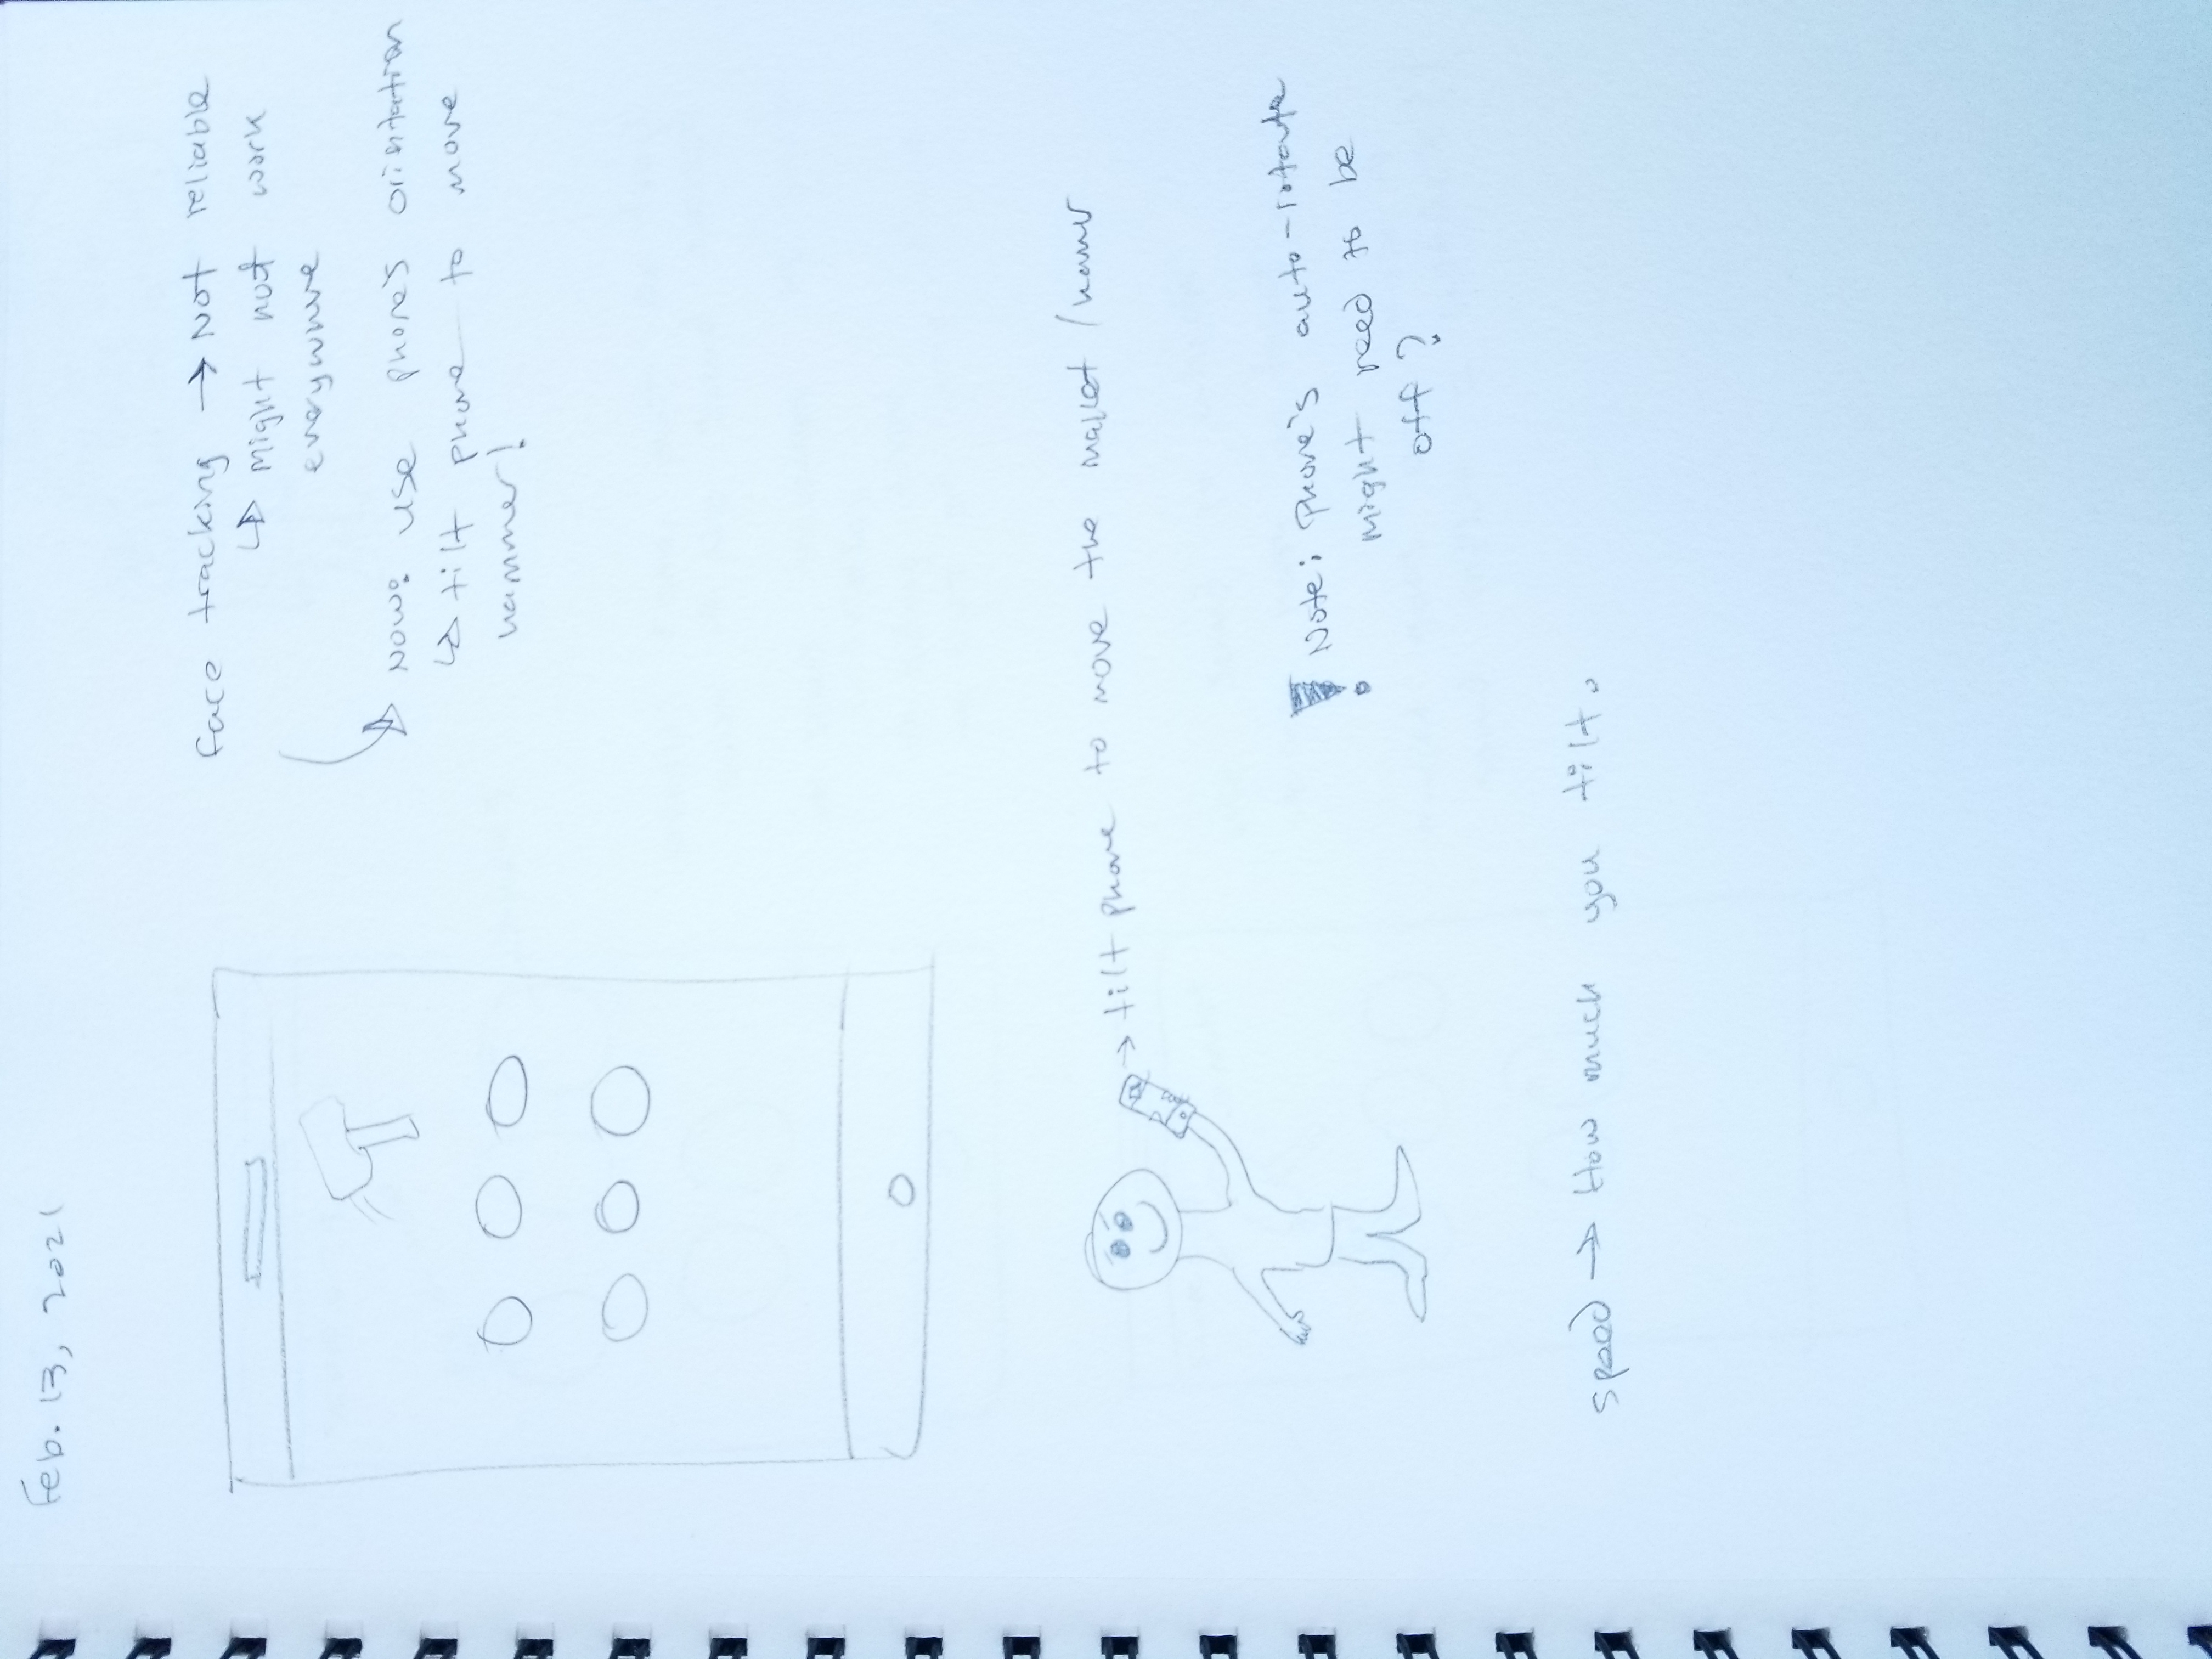 Feb. 13, 2021
face tracking → Not reliable
↳ Might not work
everywhere
Now: use phone's orientation
↳ tilt phone to move
hammer!
→ tilt phone to move the mallet / hammer
! Note: Phone's auto-rotate
might need to be
off?
speed → How much you tilt.